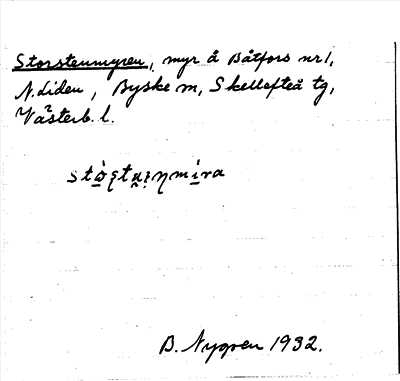 Storstenmyren, myr å Båtfors nr 1,
N. Liden, Byske sn, Skellefteå tg,
Västerb. l.
B. Nygren 1932.